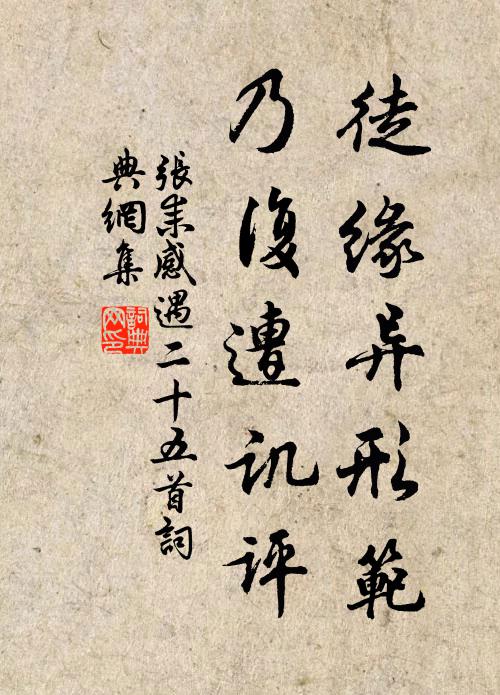 徒缘异形範
乃復遭讥评
張耒感遇二十五首詞
典網集
詞典
网印